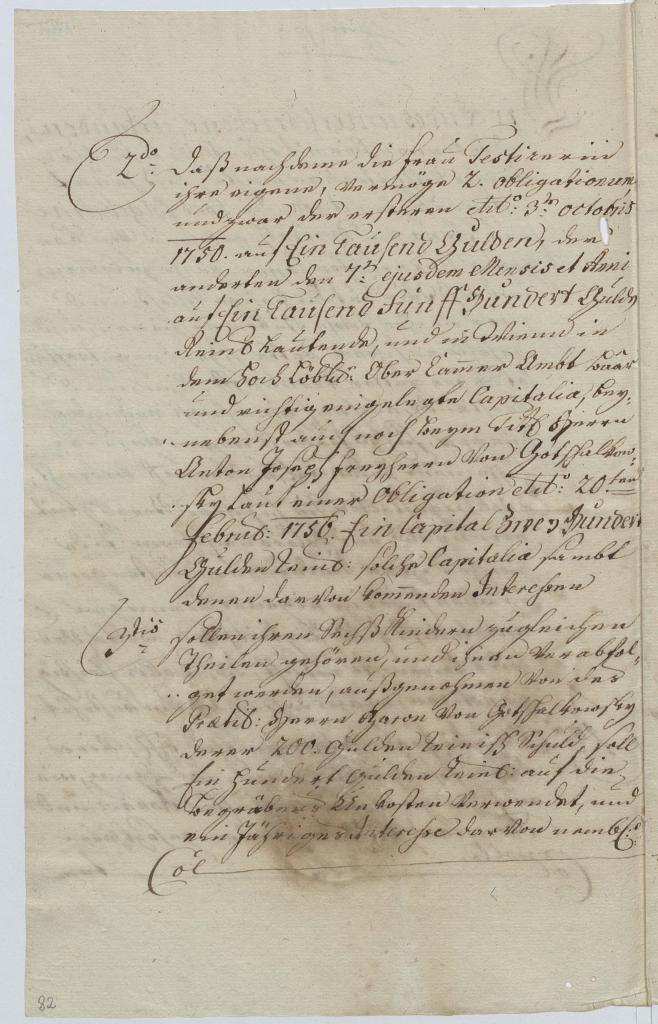 2do Daß nachdeme die Frau Testirerin
ihre eigene, vermöge 2. obligationum
und zwar der ersteren dtto 3ten octobris
1750. auf Ein Tausend Gulden, der
anderten den 7ten ejusdem Mensis et Anni
auf Ein Tausend Fünff Hundert Guldn
Reinl. Lautende, und in Wienn in
dem Hoch Löbl: Ober Cammer Ambt baar
und richtig eingelegte Capitalia, bey-
nebenst auch noch beym Titl Herrn
Anton Joseph Freyherrn von Gotschalkow-
sky laut einer Obligation dtto: 20ten
Februs: 1756. Ein Capital Zwey Hundert
Gulden Reinl: solche Capitalia sambt
denen darvon komenden Interessen
3tio sollen ihren Sechß Kindern zugleichen
Theilen gehören, und ihnen verabfol-
get werden, außgenohmen von des
Prætit: Herrn Baron von Gotschalkowsky
derer 200. Gulden Reinisch Schuld, soll
Ein Hundert Gulden Reinl: auf die
begräbnus Unkosten verwendet, und
ein Jähriges Interesse darvon nembl:
82